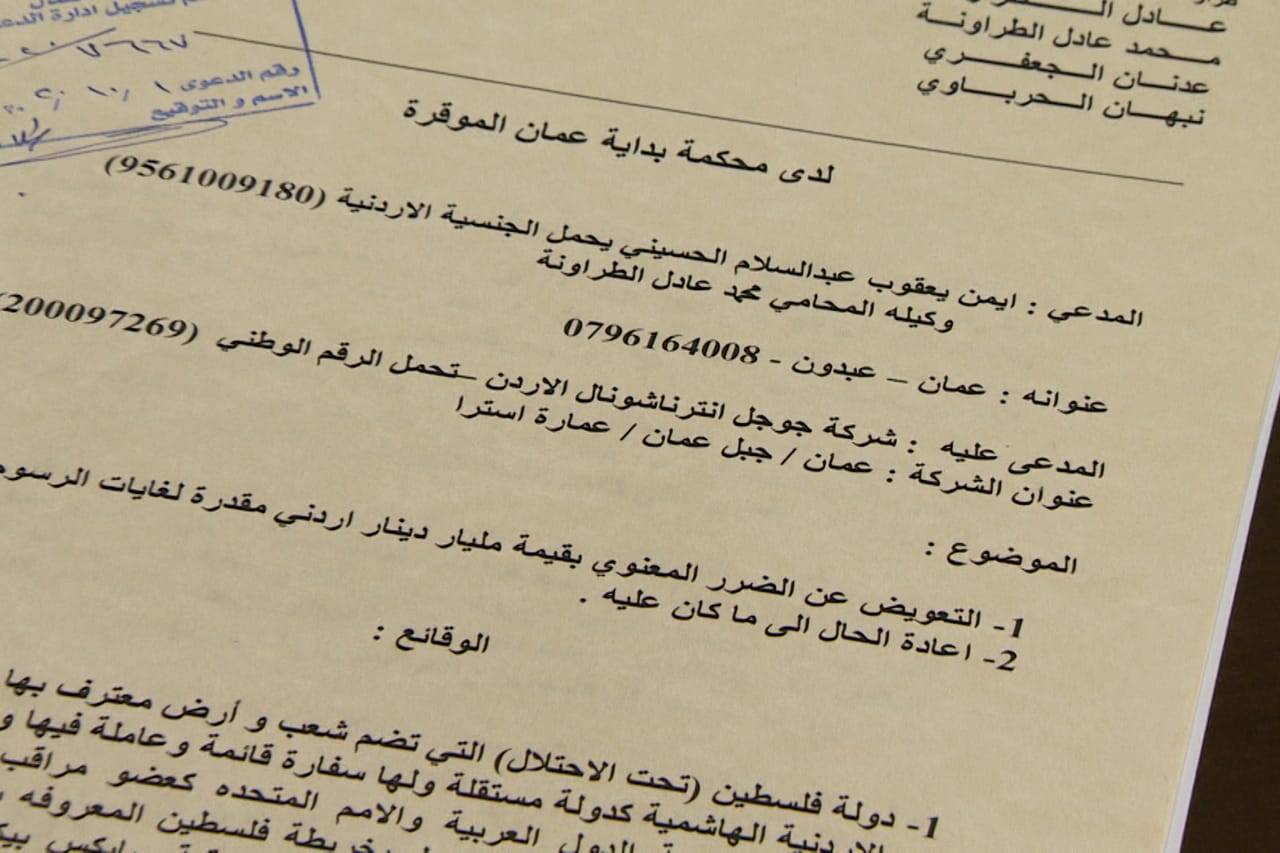 عـــادل
محمد عادل الطراونة
عدنان الـجعفـــري
نبهـان الـحربـــاوي
تسجيل ادارة
٧٦٦٧
رقم الدعوى
الاسم و التوقيع
لدى محكمة بداية عمان الموقرة
المدعي : ايمن يعقوب عبدالسلام الحسيني يحمل الجنسية الاردنية (9561009180)
وكيله المحامي محمد عادل الطراونة
عنوانه : عمان – عبدون - 0796164008
المدعى عليه : شركة جوجل انترناشونال الاردن –تحمل الرقم الوطني (200097269)
عنوان الشركة : عمان / جبل عمان / عمارة استرا
الموضوع :
1- التعويض عن الضرر المعنوي بقيمة مليار دينار اردني مقدرة لغايات الرسوم
2- اعادة الحال الى ما كان عليه .
الوقائع :
1- دولة فلسطين (تحت الاحتلال) التي تضم شعب و أرض معترف بها
الاردنية الهاشمية كدولة مستقلة ولها سفارة قائمة وعاملة فيها و
الدول العربية والامم المتحده كعضو مراقب
خريطة فلسطين المعروفه